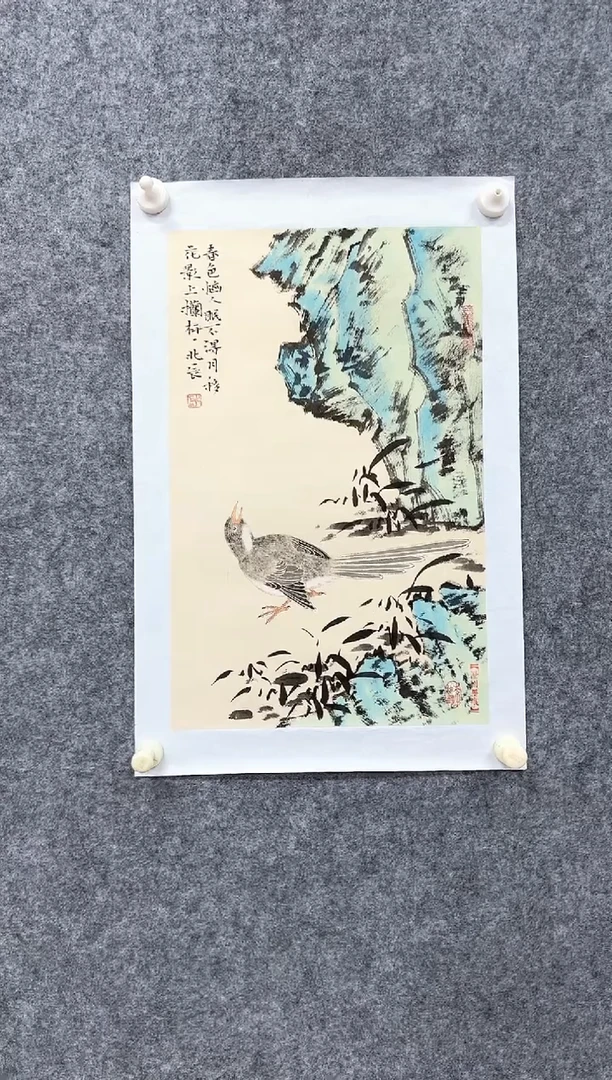 春色惱人眠不得月移
花影上欄杆北辰